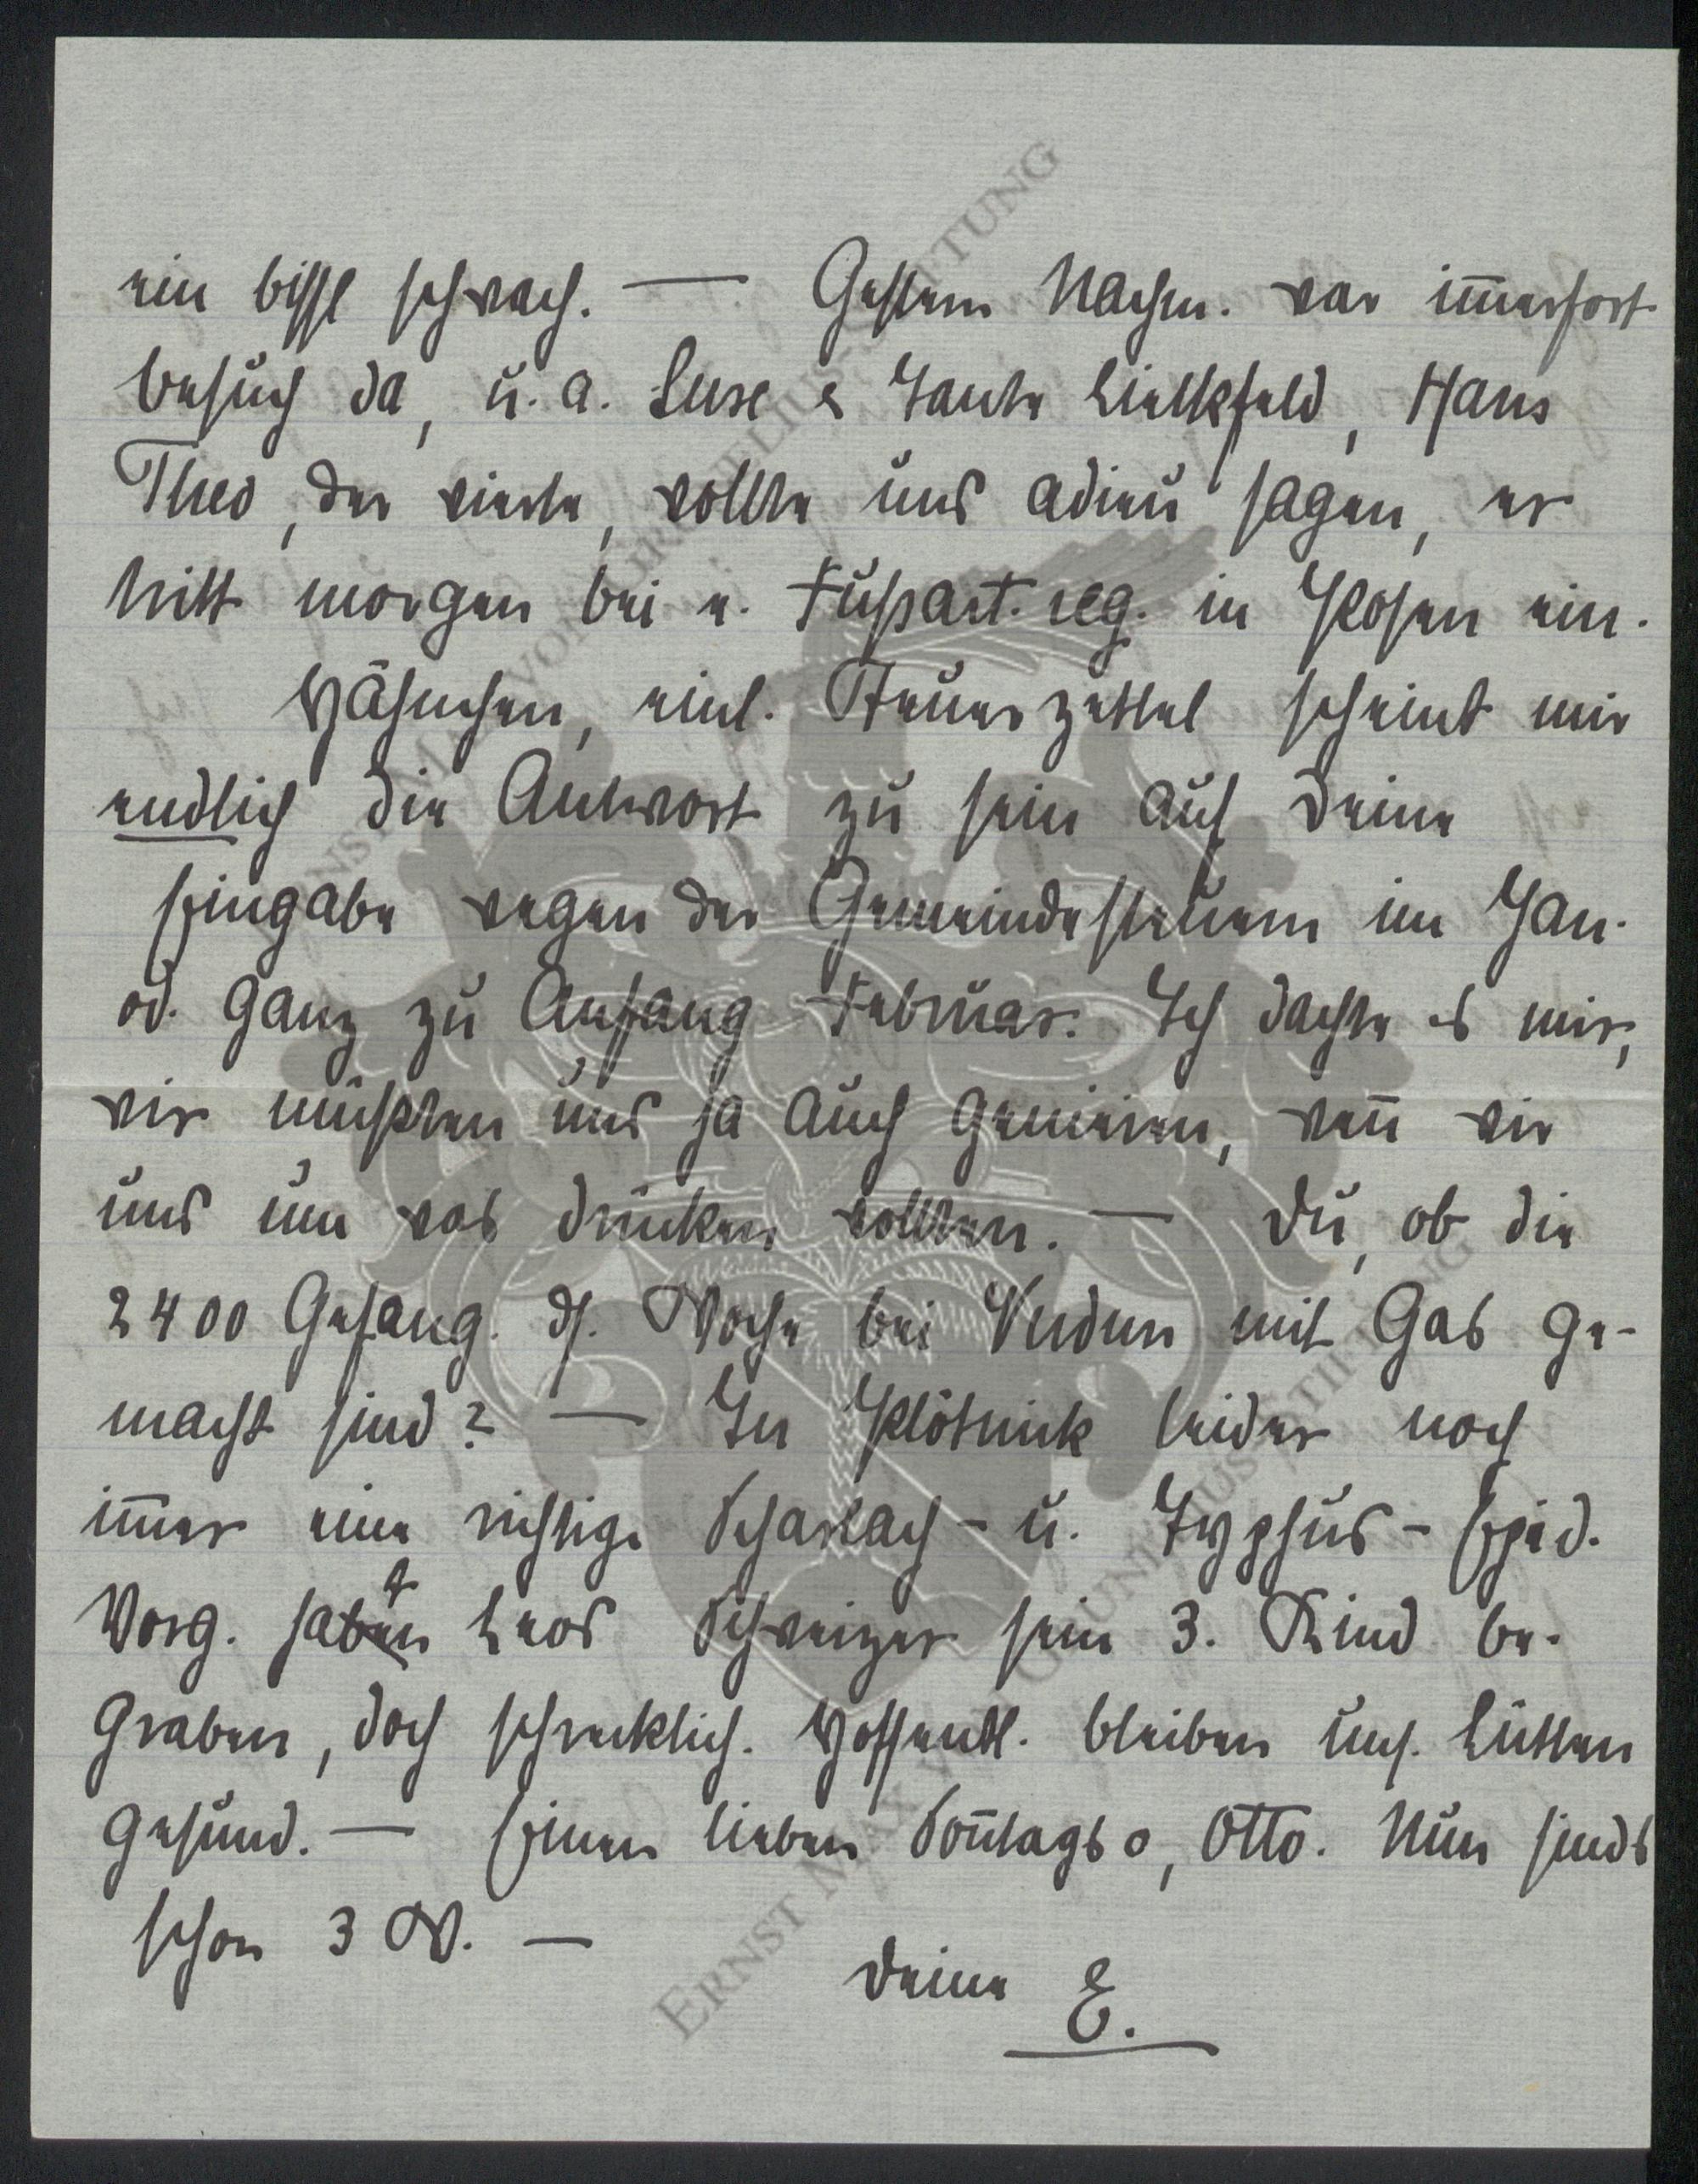 ein bissl schwach. — Gestern Nachm. war im̄erfort
besuch da, u. a. Luse & Tante Lielkfeld, Hans
Theo, der vierte, wollte uns adieu sagen, er
tritt morgen bei e. Fußart. reg. in Posen ein.
Hähnchen, einl. Steuerzettel scheint mir
endlich die Antwort zu sein auf Deine
Eingabe wegen der Gemeindesteuern im Jan.
od. ganz zu Anfang Februar. Ich dachte es mir,
wir müßten uns ja auch genieren, wen̄ wir
uns um was drücken wollten. — Du, ob die
2400 Gefang. ds. Woche bei Verdun mit Gas ge-
macht sind? — In Plötnick leider noch
im̄er eine richtige Scharlach- u. Typhus-Epid.
Vorg. haben Leos Schweizer sein 3. Kind be-
graben, doch schrecklich. Hoffentl. bleiben uns. Lütten
gesund. — Einen lieben Son̄tags o, Otto. Nun sinds
schon 3 W. —
Deine E.
ERNST MAX VON GRUNELIUS-STIFTUNG
ERNST MAX VON GRUNELIUS-STIFTUNG